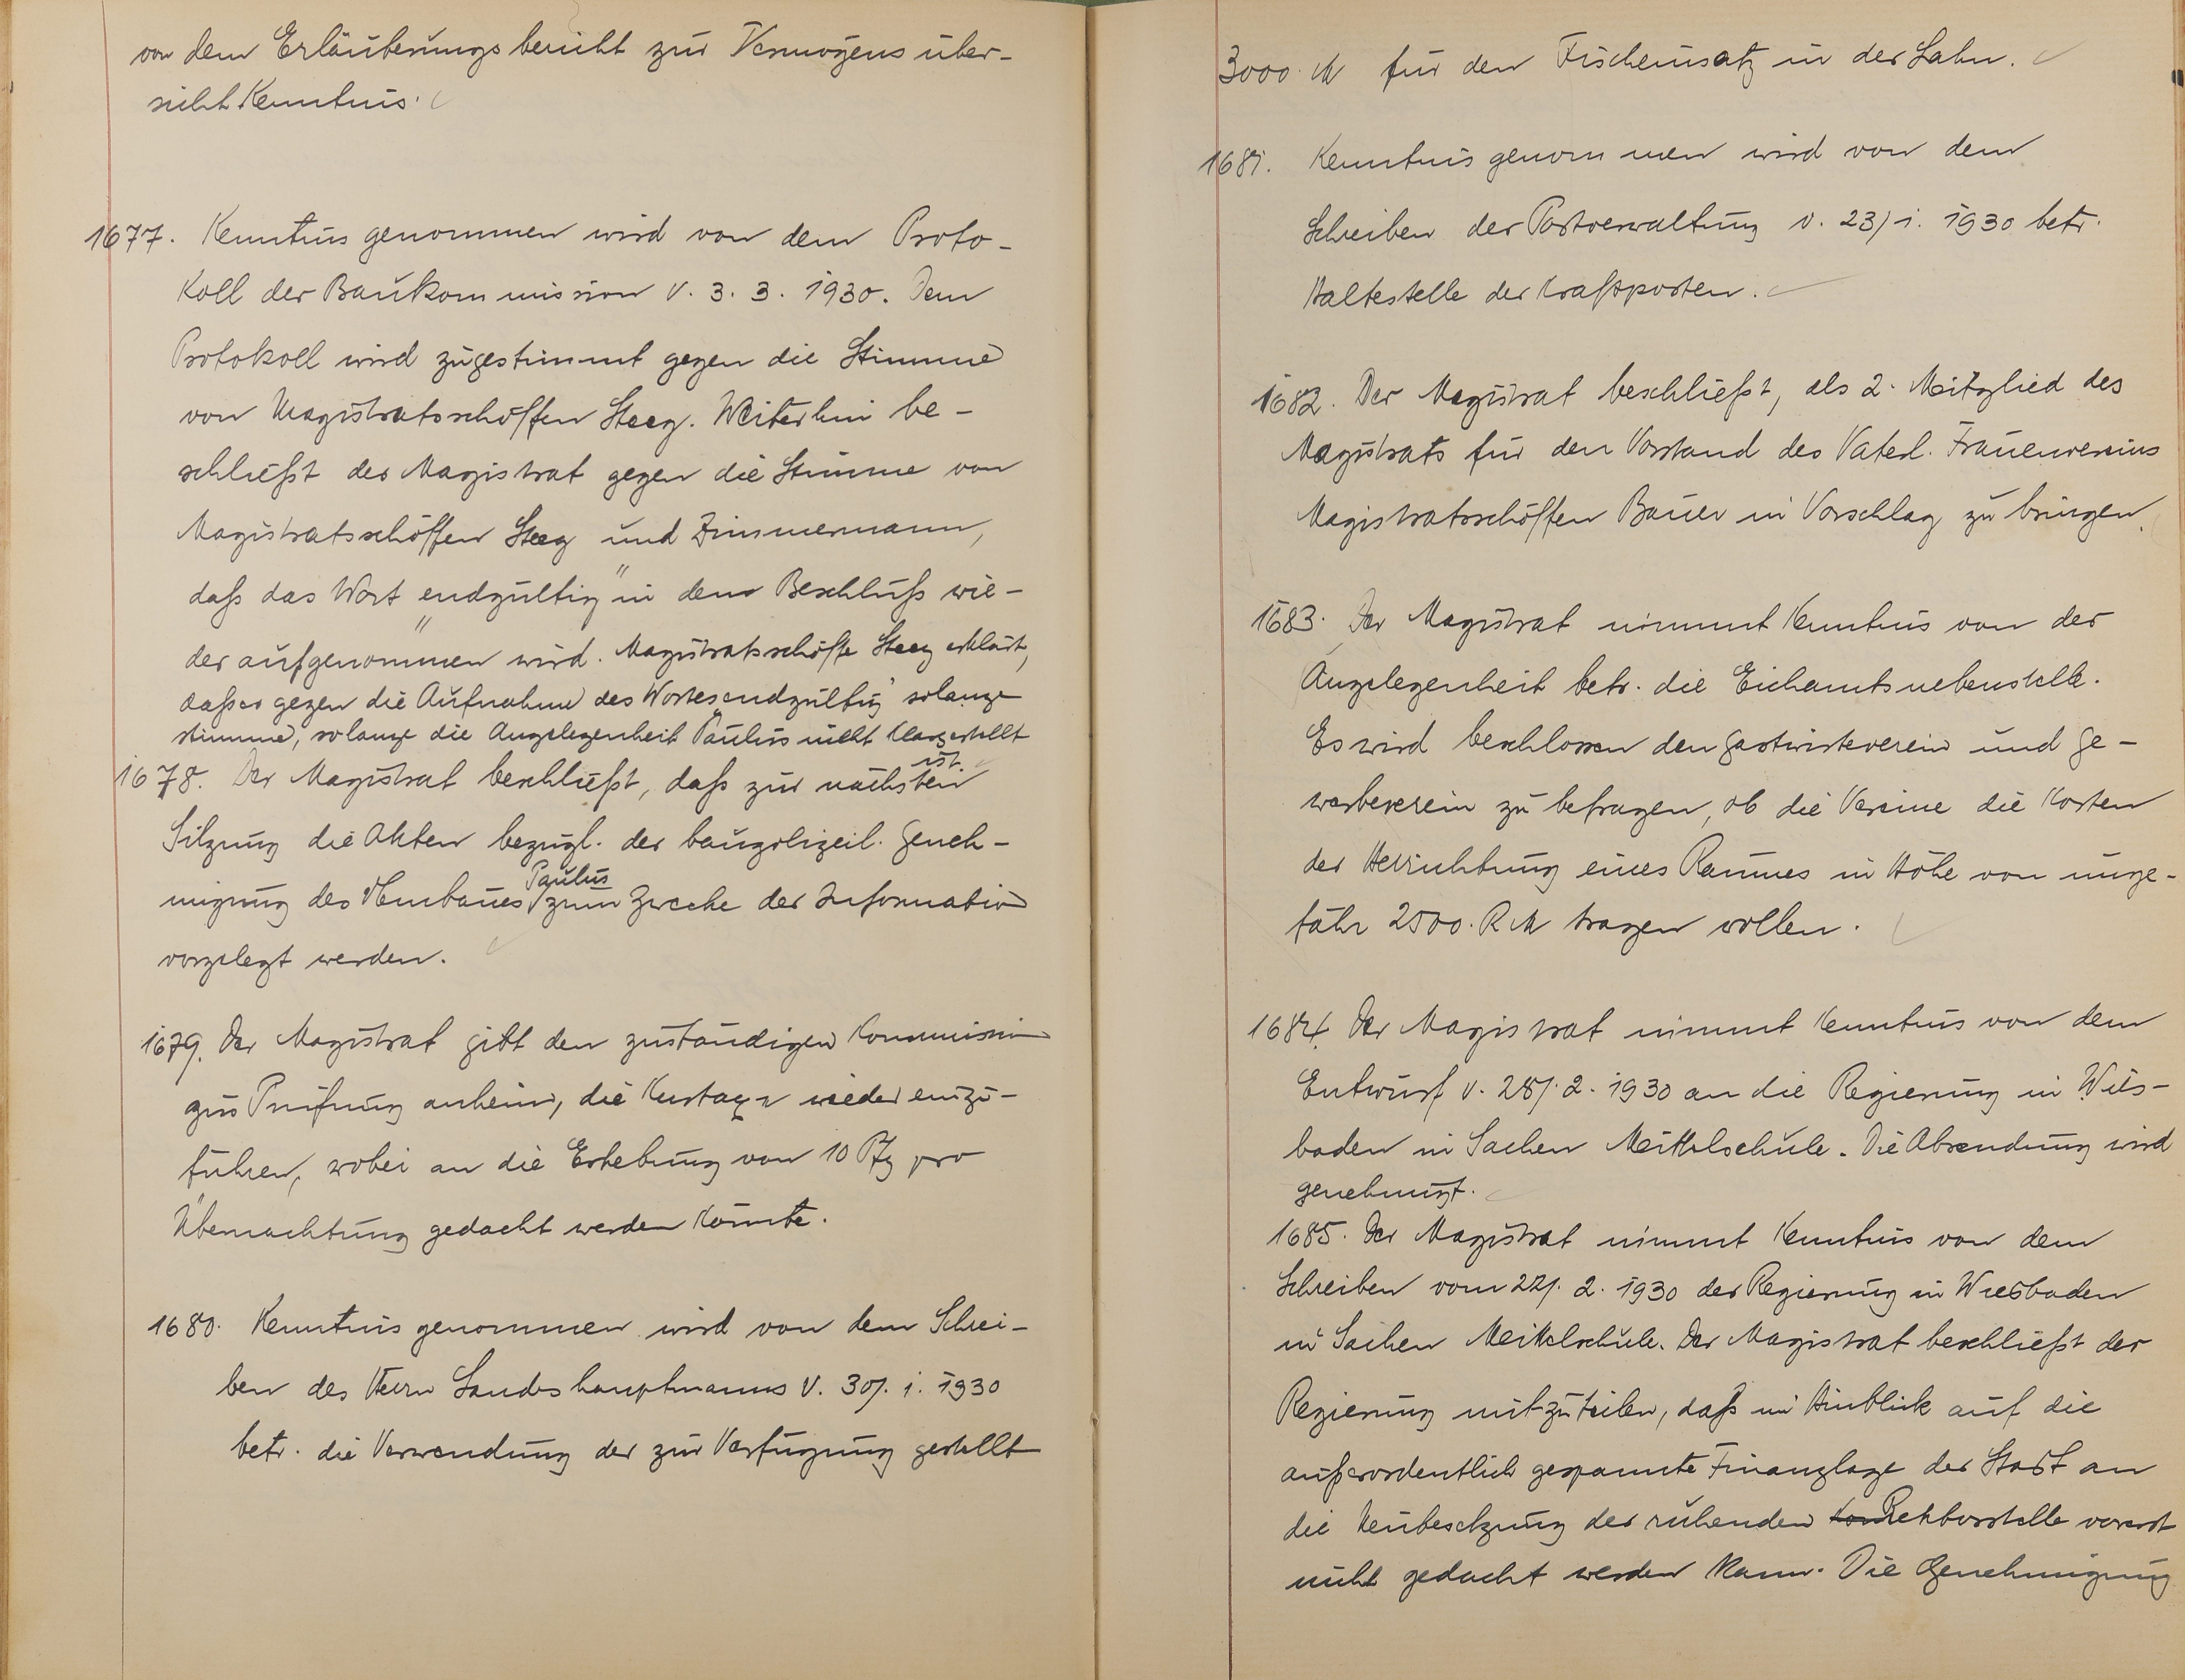 von dem Erläuterungsbericht zur Vermögensüber-
sicht Kenntnis.
1677. Kenntnis genommen wird von dem Proto-
koll der Baukommission v. 3. 3. 1930. Dem
Protokoll wird zugestimmt gegen die Stimme
von Magistratsschöffen Steeg. Weiterhin be-
schließt der Magistrat gegen die Stimme von
Magistratsschöffen Steeg und Zimmermann,
daß das Wort „endgültig" in dem Beschluß wie-
der aufgenommen wird. Magistratsschöffe Steeg erklärt,
daß er gegen die Aufnahme des Wortes „endgültig" solange
stimme, solange die Angelegenheit Paulus nicht klargestellt
ist.
1678. Der Magistrat beschließt, daß zur nächsten
Sitzung die Akten bezügl. der baupolizeil. Geneh-
migung des Neubaues Paulus zum Zwecke der Information
vorgelegt werden.
1679. Der Magistrat gibt den zuständigen Kommission
zur Prüfung anheim, die Kurtaxe wieder einzu-
führen, wobei an die Erhebung von 10 Pfg pro
Übernachtung gedacht werden könnte.
1680. Kenntnis genommen wird von dem Schrei-
ben des Herrn Landeshauptmanns v. 30/. 1. 1930
betr. die Verwendung der zur Verfügung gestellt
3000 M für den Fischeinsatz in der Lahn.
1681. Kenntnis genommen wird von dem
Schreiben der Postverwaltung v. 23/1. 1930 betr.
Haltestelle der Kraftposten.
1682. Der Magistrat beschließt, als 2. Mitglied des
Magistrats für den Vorstand des Vaterl. Frauenvereins
Magistratsschöffen Bauer in Vorschlag zu bringen.
1683. Der Magistrat nimmt Kenntnis von der
Angelegenheit betr. die Eichamtsnebenstelle.
Es wird beschlossen den Gastwirteverein und Ge-
werbeverein zu befragen, ob die Vereine die Kosten
der Herrichtung eines Raumes in Höhe von unge-
fähr 2500. RM tragen wollen.
1684. Der Magistrat nimmt Kenntnis von dem
Entwurf v. 28/. 2. 1930 an die Regierung in Wies-
baden in Sachen Mittelschule. Die Absendung wird
genehmigt.
1685. Der Magistrat nimmt Kenntnis von dem
Schreiben vom 22/. 2. 1930 der Regierung in Wiesbaden
in Sachen Mittelschule. Der Magistrat beschließt der
Regierung mitzuteilen, daß im Hinblick auf die
außerordentlich gespannte Finanzlage der Stadt an
die Neubesetzung der ruhenden Rektorstelle vorerst
nicht gedacht werden kann. Die Genehmigung